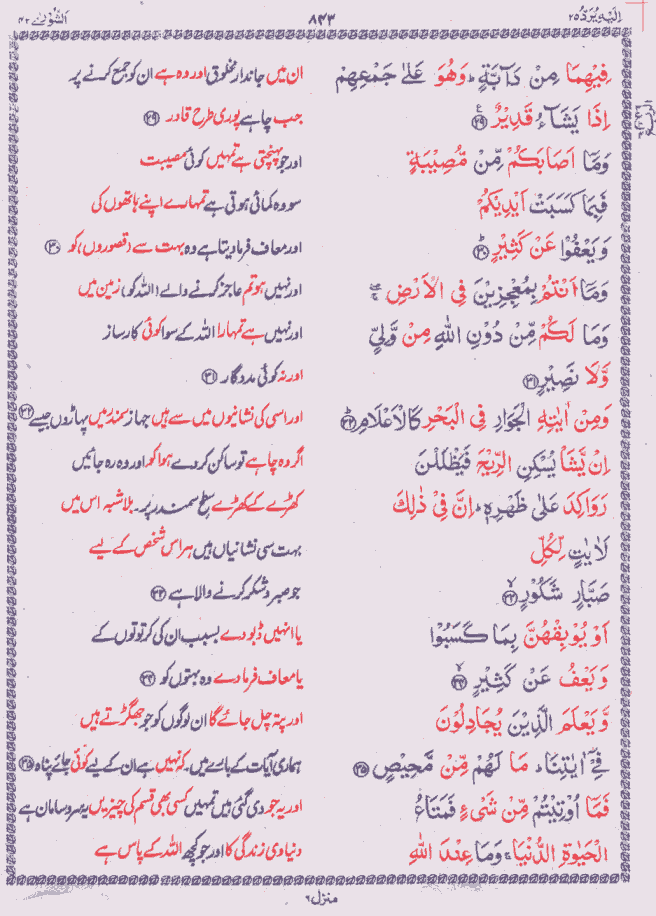 اِلَیْہِ یُرَدُّ ۲۵ ۸۴۳ اَلشُّوْرٰی ۴۲
فِيْهِمَا مِنْ دَآبَّةٍ ؕ وَهُوَ عَلٰى جَمْعِهِمْ ان میں جاندار مخلوق اور وہ ہے ان کو جمع کرنے پر
اِذَا يَشَآءُ قَدِيْرٌ ۲۹ جب چاہے پوری طرح قادر ۲۹
وَمَاۤ اَصَابَكُمْ مِّنْ مُّصِيْبَةٍ اور جو پہنچتی ہے تمہیں کوئی مصیبت
فَبِمَا كَسَبَتْ اَيْدِيْكُمْ سو وہ کمائی ہوتی ہے تمہارے اپنے ہاتھوں کی
وَيَعْفُوْا عَنْ كَثِيْرٍ ۳۰ اور معاف فرمادیتا ہے وہ بہت سے (قصوروں) کو ۳۰
وَمَاۤ اَنْتُمْ بِمُعْجِزِيْنَ فِى الْاَرْضِ اور نہیں ہو تم عاجز کرنے والے (اللہ کو) زمین میں
وَمَا لَكُمْ مِّنْ دُوْنِ اللّٰهِ مِنْ وَّلِىٍّ اور نہیں ہے تمہارا اللہ کے سوا کوئی کارساز
وَّلَا نَصِيْرٍ ۳۱ اور نہ کوئی مددگار ۳۱
وَمِنْ اٰيٰتِهِ الْجَوَارِ فِى الْبَحْرِ كَالْاَعْلَامِ ۳۲ اور اسی کی نشانیوں میں سے ہیں جہاز سمندر میں پہاڑوں جیسے ۳۲
اِنْ يَّشَاْ يُسْكِنِ الرِّيْحَ فَيَظْلَلْنَ اگر وہ چاہے تو ساکن کردے ہوا کو اور وہ رہ جائیں
رَوَاكِدَ عَلٰى ظَهْرِهٖ ؕ اِنَّ فِىْ ذٰلِكَ کھڑے کے کھڑے سطح سمندر پر۔ بلاشبہ اس میں
لَاٰيٰتٍ لِّكُلِّ بہت سی نشانیاں ہیں ہر اس شخص کے لیے
صَبَّارٍ شَكُوْرٍ ۳۳ جو صبر و شکر کرنے والا ہے ۳۳
اَوْ يُوْبِقْهُنَّ بِمَا كَسَبُوْا یا انہیں ڈبودے بسبب ان کی کرتوتوں کے
وَيَعْفُ عَنْ كَثِيْرٍ ۳۴ یا معاف فرمادے وہ بہتوں کو ۳۴
وَّيَعْلَمَ الَّذِيْنَ يُجَادِلُوْنَ اور پتہ چل جائے گا ان لوگوں کو جو جھگڑتے ہیں
فِىْۤ اٰيٰتِنَا ؕ مَا لَهُمْ مِّنْ مَّحِيْصٍ ۳۵ ہماری آیات کے بارے میں۔ کہ نہیں ہے ان کے لیے کوئی جائے پناہ ۳۵
فَمَاۤ اُوْتِيْتُمْ مِّنْ شَىْءٍ فَمَتَاعُ اور یہ جو دی گئی ہیں تمہیں کسی بھی قسم کی چیزیں یہ سروسامان ہے
الْحَيٰوةِ الدُّنْيَا ۚ وَمَا عِنْدَ اللّٰهِ دنیاوی زندگی کا اور جو کچھ اللہ کے پاس ہے
منزل ۶